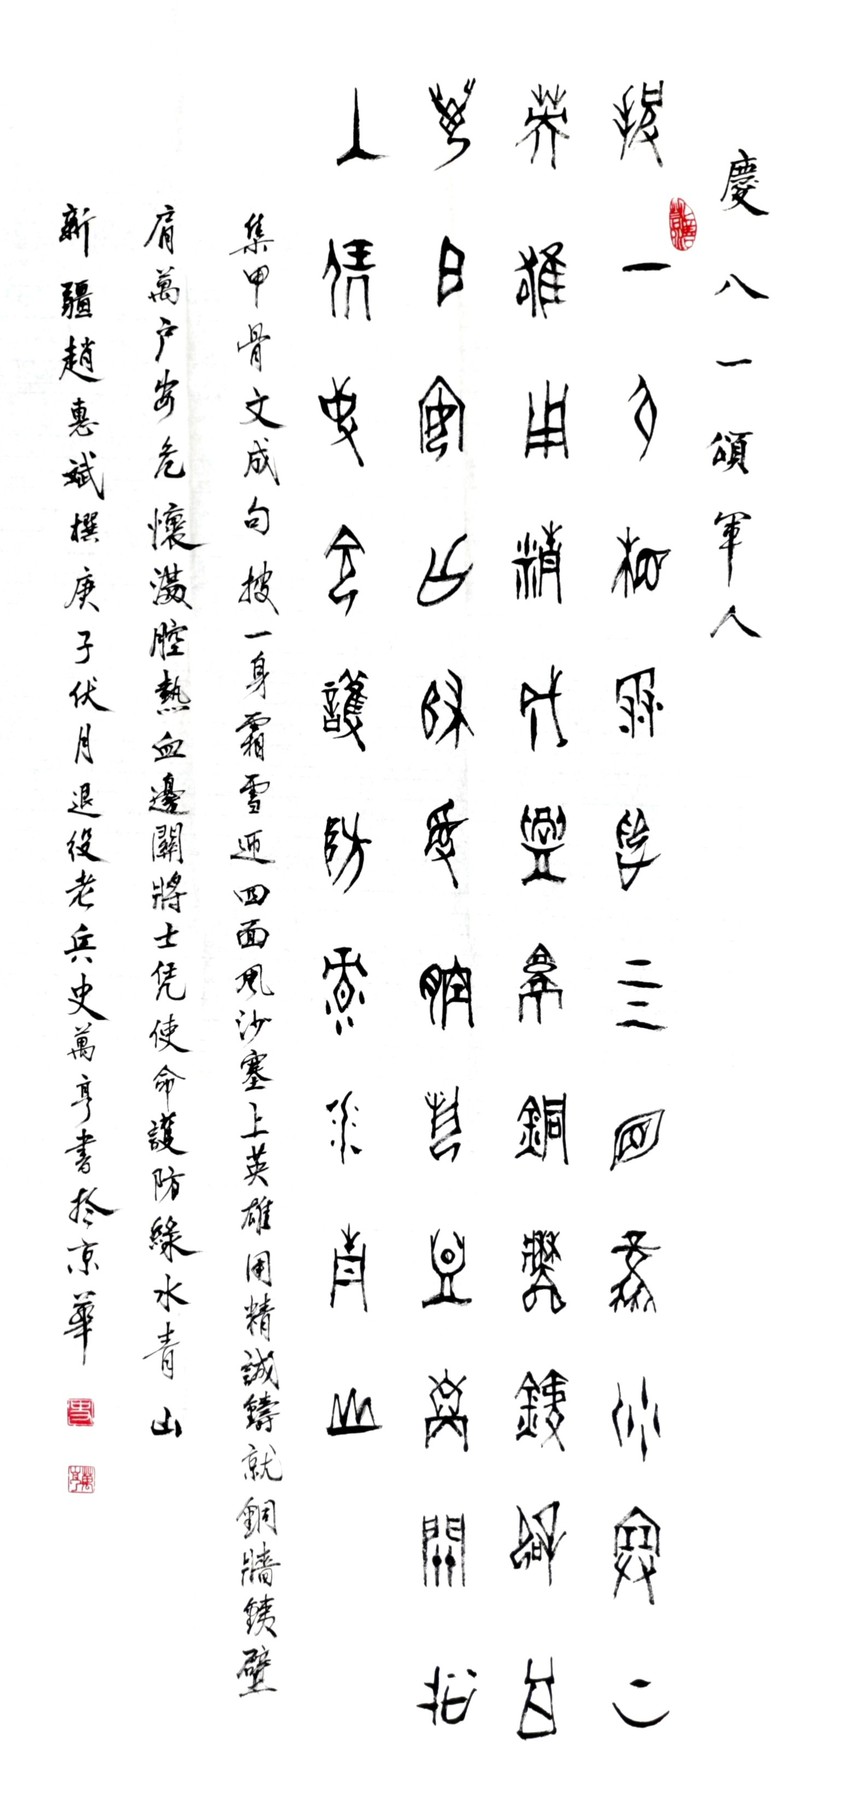 慶八一頌軍人
披一身霜雪迎四面風沙塞上
英雄用精誠鑄就銅牆銕壁肩
萬户安危懷滿腔熱血邊關將
士凭使命護防綠水青山
集甲骨文成句 披一身霜雪迎四面風沙塞上英雄用精誠鑄就銅牆銕壁
肩萬户安危懷滿腔熱血邊關將士凭使命護防綠水青山
新疆趙惠斌撰庚子伏月退役老兵史萬亨書於京華